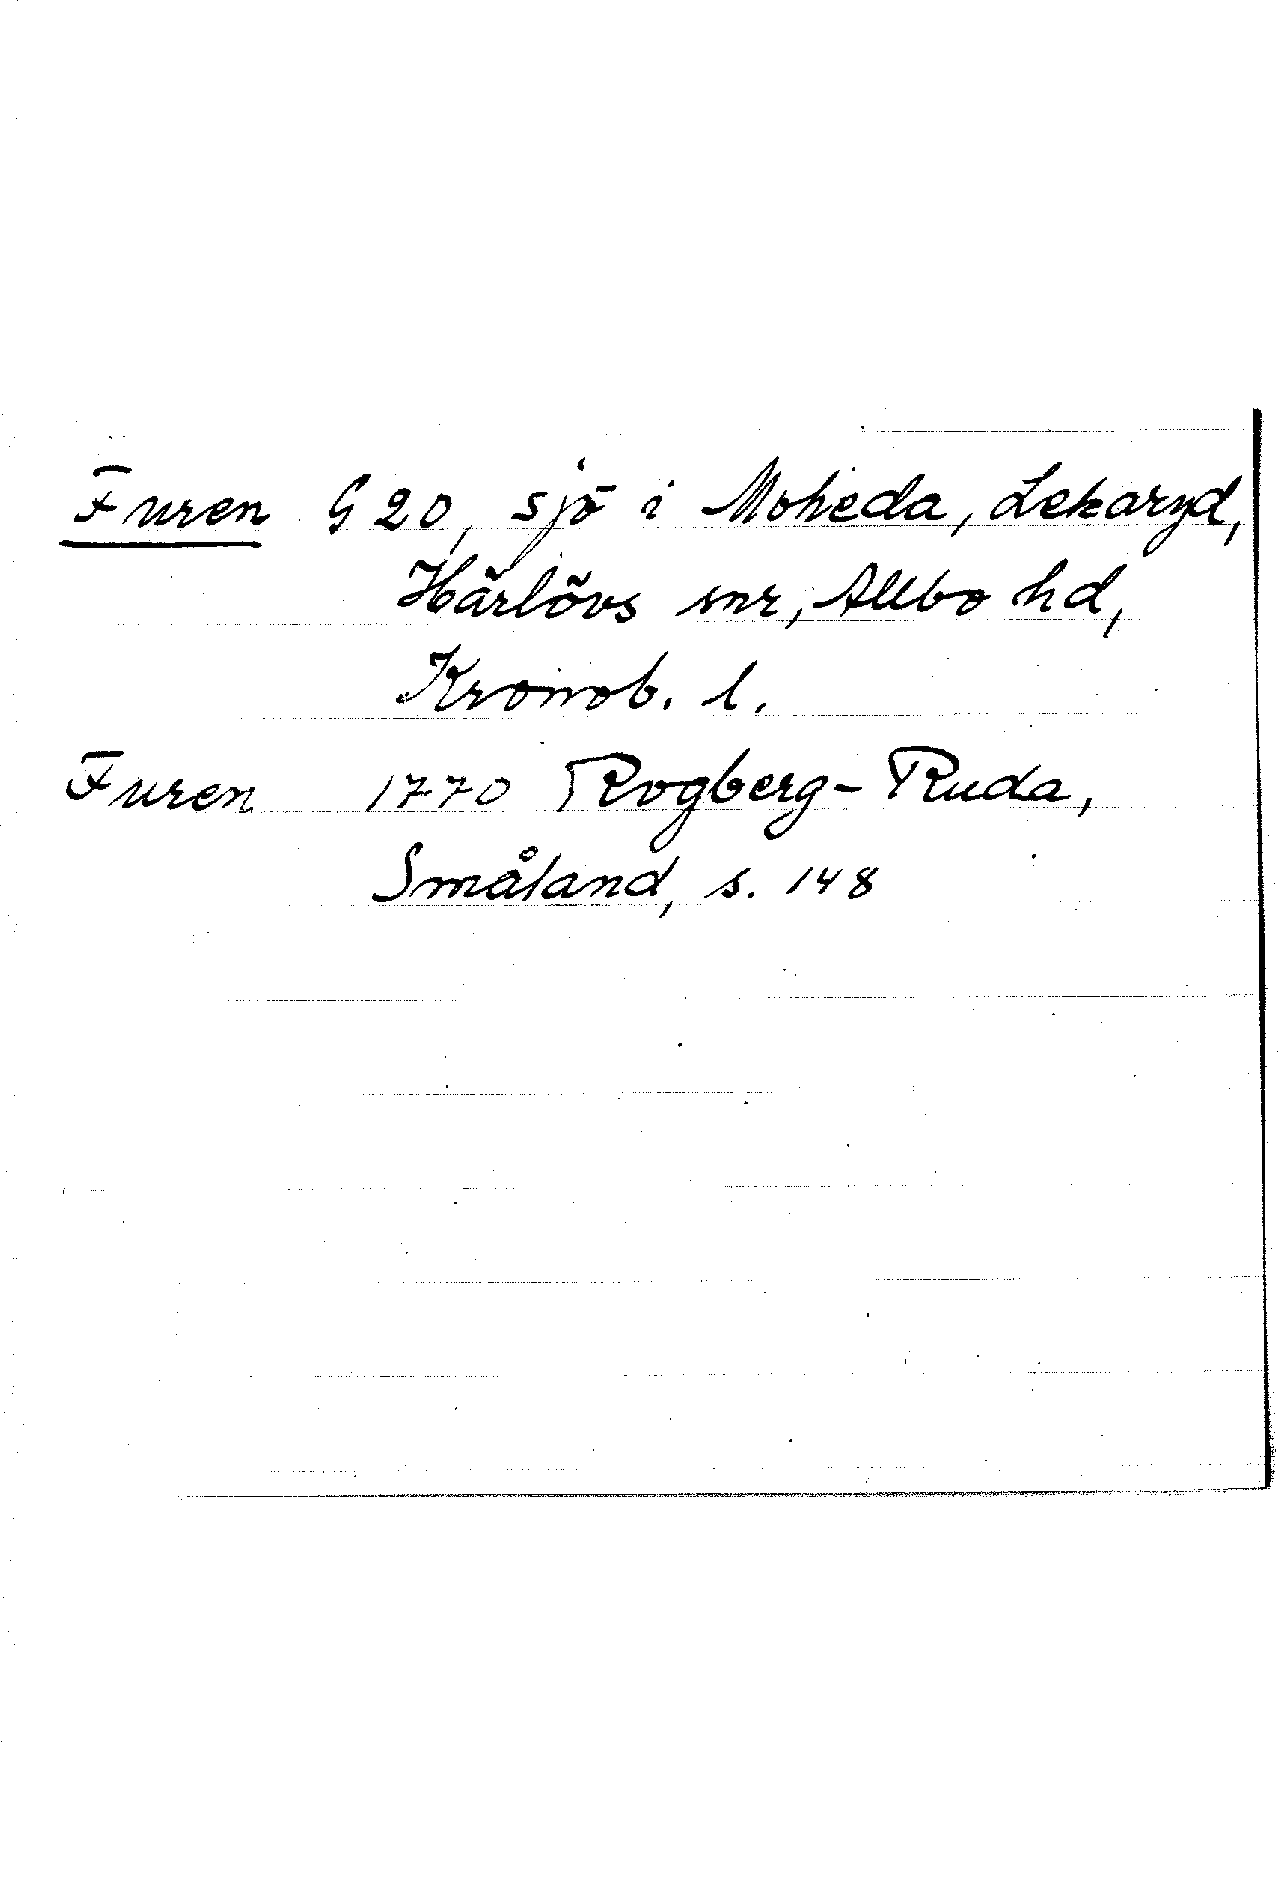 Furen G 20, sjö i Moheda, Lekaryd,
Härlövs snr, Allbo hd,
Kronob. l.
Furen 1770 Rogberg-Ruda,
Småland, s. 148